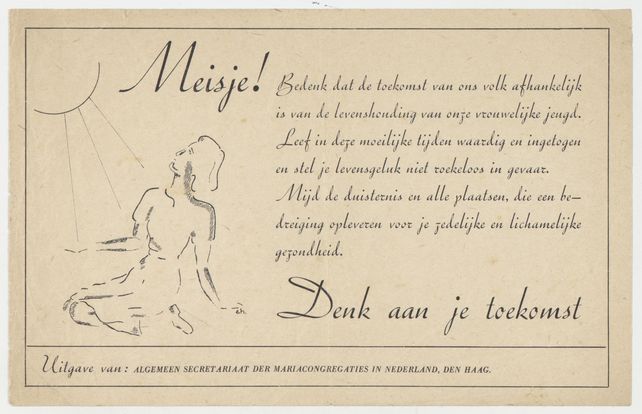 Meisje!
Bedenk dat de toekomst van ons volk afhankelijk
is van de levenshouding van onze vrouwelijke jeugd.
Leef in deze moeilijke tijden waardig en ingetogen
en stel je levensgeluk niet roekeloos in gevaar.
Mijd de duisternis en alle plaatsen, die een be-
dreiging opleveren voor je zedelijke en lichamelijke
gezondheid.
Denk aan je toekomst
Uitgave van: ALGEMEEN SECRETARIAAT DER MARIACONGREGATIES IN NEDERLAND, DEN HAAG.